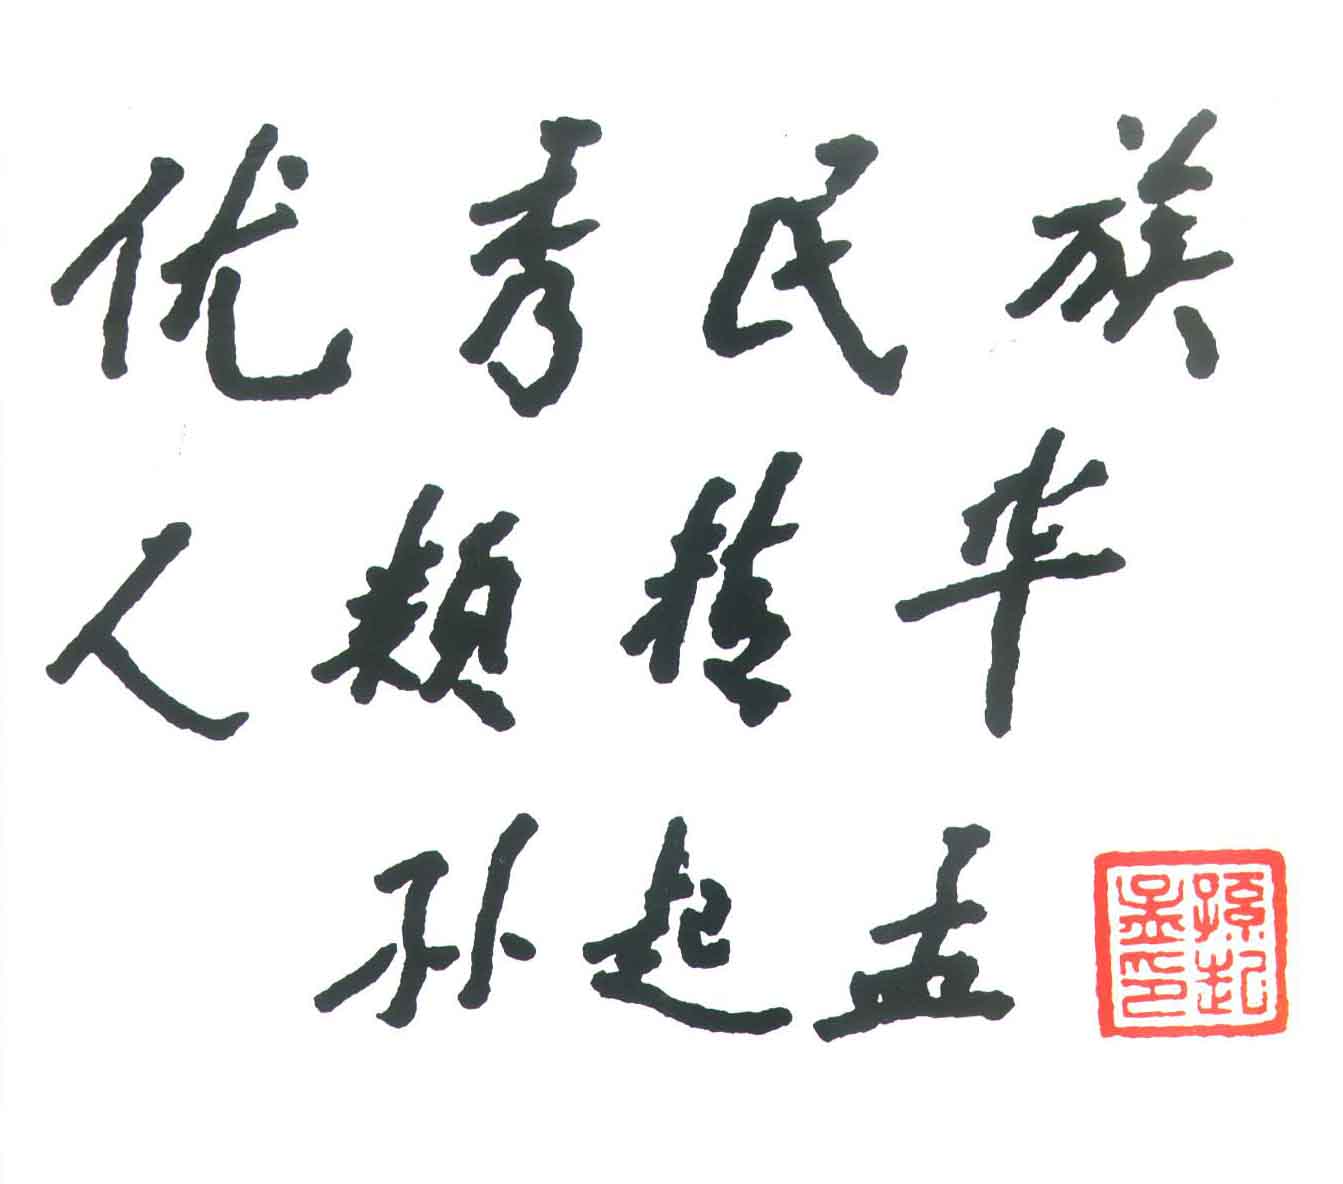 优秀民族
人类精华
孙起孟
孫起孟印